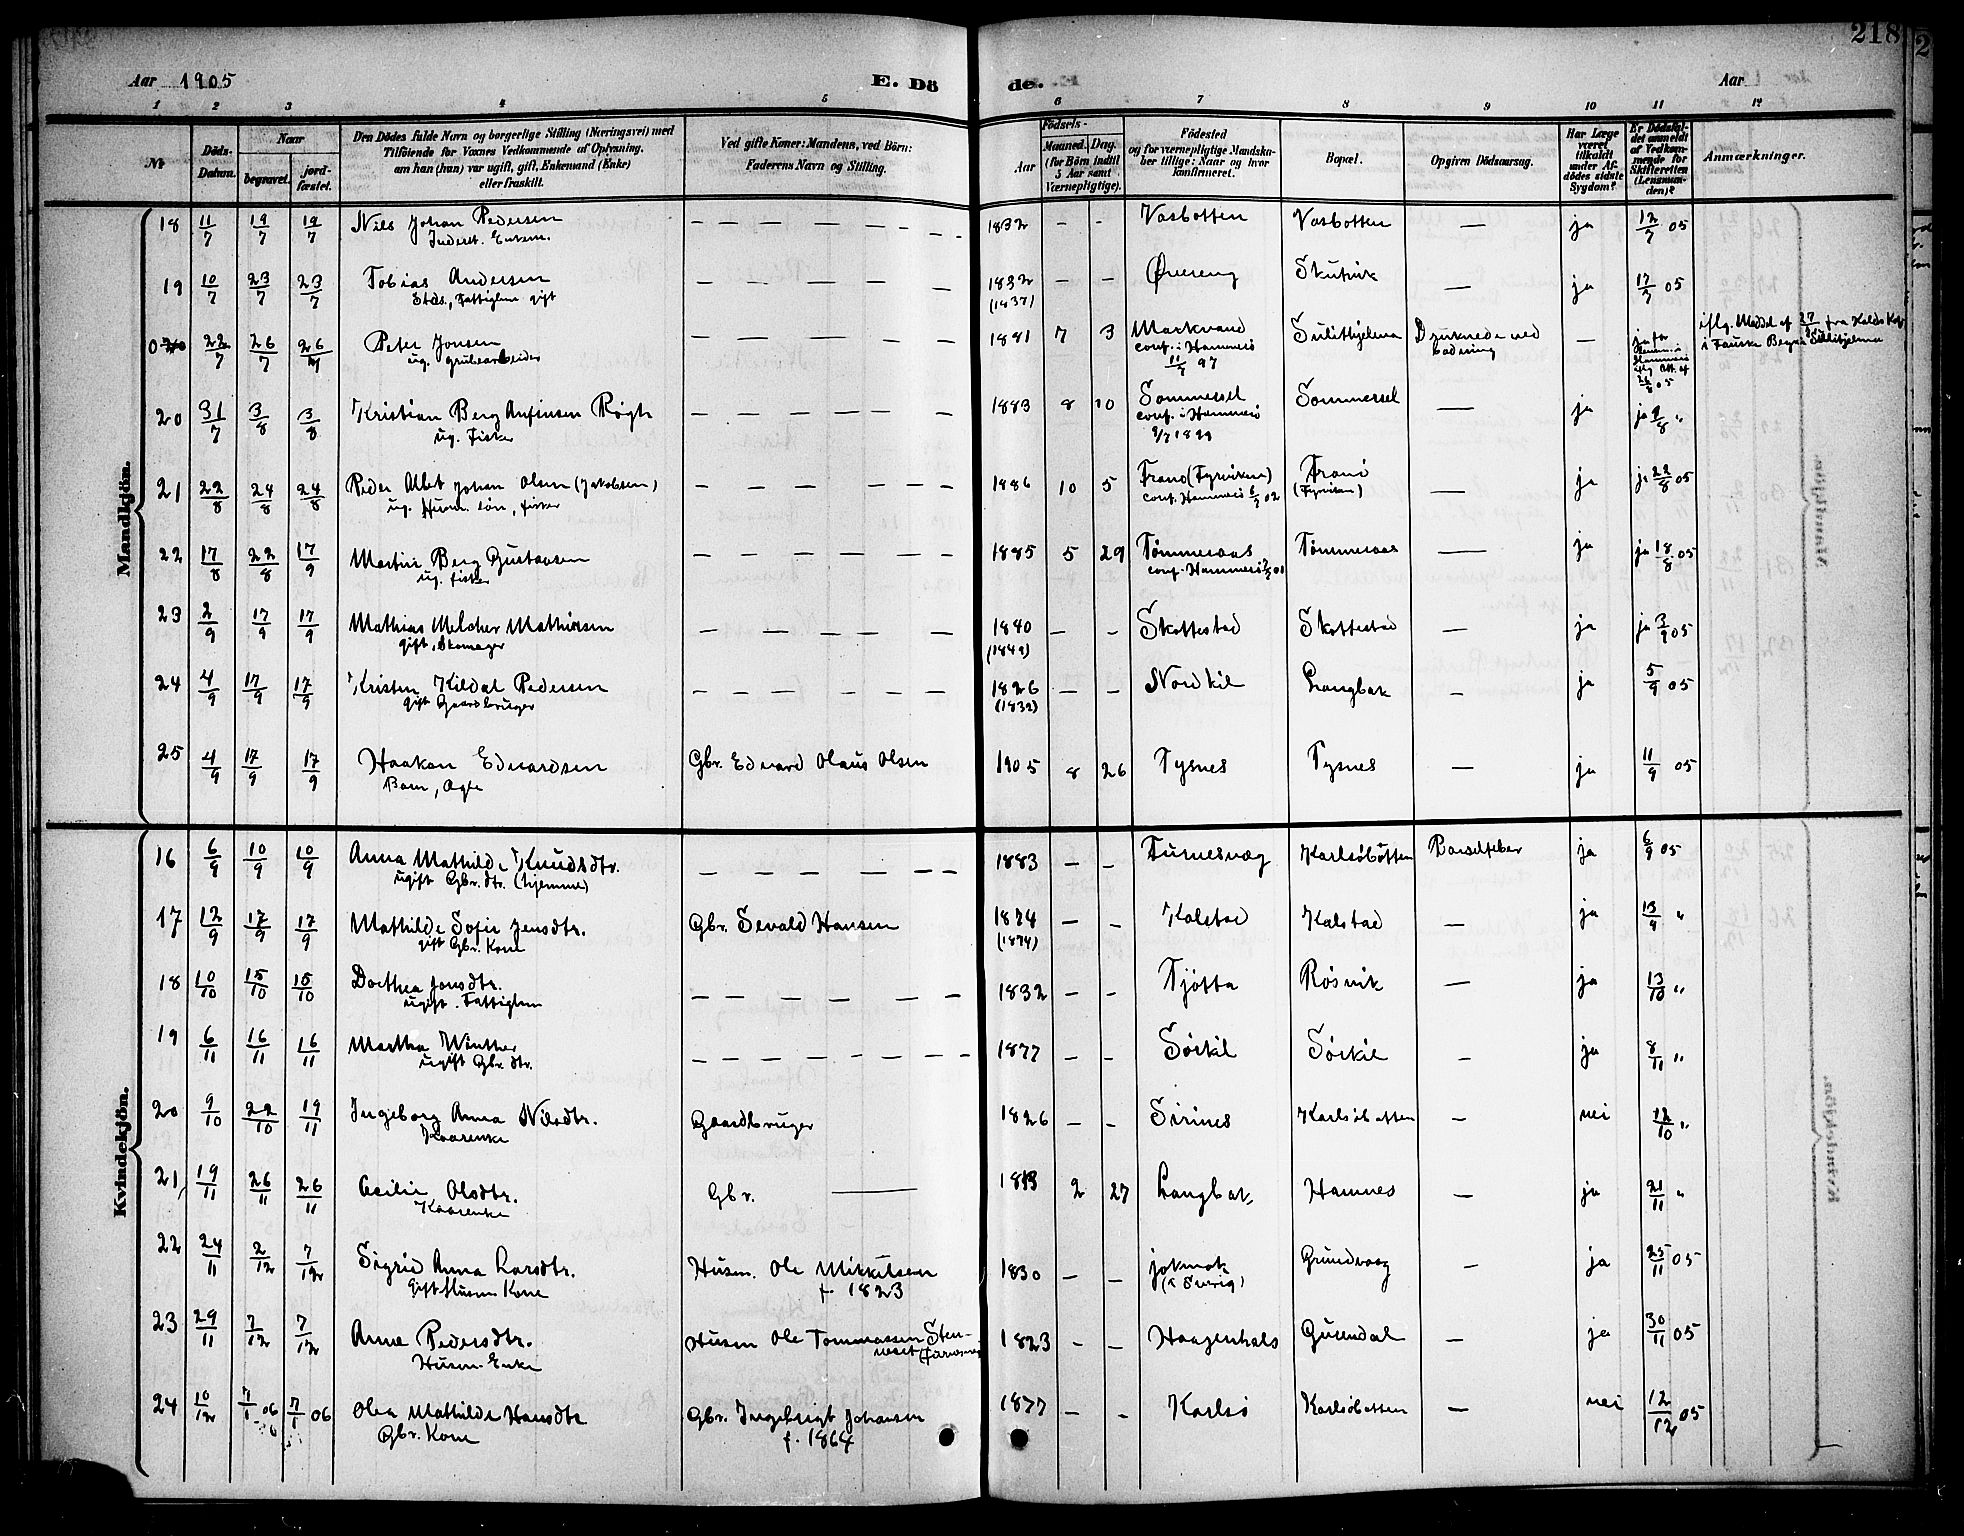 218
Aar 1905
E. Dö
de.
Aar
1 2 3 4 5 6 7 8 9 10 11 12
No
Döds-
Datum.
Naar
begravet.
jord-
fæstet.
Den Dödes fulde Navn og borgerlige Stilling (Næringsvei) med
Tilföiende for Voxnes Vedkommende af Oplysning.
om han (hun) var ugift, gift, Enkemand (Enke)
eller fraskilt.
Ved gifte Koner: Mandens, ved Börn:
Faderens Navn og Stilling.
Födsels-
Aar
Maaned. Dag.
(for Börn indtil
5 Aar samt
Værnepligtige).
Födested
og for værnepligtige Mandska-
ber tillige: Naar og hvor
konfirmeret.
Bopæl.
Opgiven Dödsaarsag.
Har Læge
været
tilkaldt
under Af-
dödes sidste
Sygdom?
Er Dödsfal-
det anmeldt
af Vedkom-
mende for
Skifteretten
(Lensman-
den)?
Anmærkninger.
Mandkjön.
18 11/7 19/7 19/7 Nils Johan Pedersen — — — — — — 1832 - - Vasbotten Vasbotten — ja 12/7 05
Inderst. Enkem.
19 10/7 23/7 23/7 Tobias Andersen — — — — — 1832 — — Skutvik — ja 17/7 05
fattiglem gift (1837)
22/7 26/7 26/7 Peter Jensen — — — — — 1881 7 3 Markvand Sulithjelma Druknede ved —
ug. grubearbeider conf. i Hammerö badning
11/7 97
20 31/7 3/8 3/8 Kristian Berg Anfinsen Røgh — — — — — 1883 8 10 Sommersel Sommersel — ja ja 9/8 "
ug. fisker conf. i Hammerö
9/7 1899
21 22/8 24/8 24/8 Peder Albet Johan Olsen (Jakobsen) — — — — — 1886 10 5 Tranö (Fyrviken) Tranö — ja ja 22/8 05
ug. Husm. søn, fisker conf. Hammerö 6/7 02 (Fyrviken)
22 17/8 22/8 17/9 Martin Berg Gustavsen — — — — — 1885 5 29 Tømmeraas Tømmeraas — ja ja 18/8 05
ug. fisker conf. Hammerö
23 2/9 17/9 17/9 Mathias Melcher Mathisen — — — — — 1840 — - Skottestad Skottestad — ja ja 3/9 05
gift, Skomager (1849)
24 4/9 17/9 17/9 Kristen Kildal Pedersen — — — — — 1826 — — Nordkil Langbak — ja 5/9 05
gift Gaardbruger (1832)
25 4/9 17/9 17/9 Haakon Edvardsen Gbr. Edvard Olaus Olsen 1905 8 26 Tysnes Tysnes — ja 11/9 05
Barn, Ægte
Kvindekjön.
16 6/9 10/9 10/9 Anna Mathilde Knudsdtr. — — — — — 1883 — - Furnesvaag Karlsöbotten Barselfeber ja 6/9 05
ugift Gbr. dtr. (hjemme)
17 12/9 17/9 17/9 Mathilde Sofie Jensdtr. Gbr. Sevald Hansen 1874 — - Kalstad Kalstad — ja 13/9 "
gift Gbr. Kone (1874)
18 10/10 15/10 15/10 Dorthea Jonsdtr. — — — — — — 1832 — - Tjøtta Røsvik — ja 13/10 "
ugift. Fattiglem
19 6/11 16/11 16/11 Martha Winther — — — — — — 1877 — - Sørkil Sørkil — ja 8/11 "
ugift Gbr. dtr.
20 9/10 22/10 19/11 Ingeborg Anna Nilsdtr. Gaardbruger 1826 — - Sirines Karlsöbotten — nei 12/10 "
Kaarenke
21 19/11 26/11 26/11 Cecilie Olsdtr. Gbr. —— 2 27 Langbak Hamnes — ja 21/11 "
Kaarenke
22 24/11 2/12 7/12 Sigrid Anna Larsdtr. Husm. Ole Mikkelsen 1830 — — Jokmok Grundvaag — ja 25/11 05
Gift Husm Kone f. 1823 (i Sverig)
23 29/11 7/12 7/12 Anne Pedersdtr. Husm Ole Tommassen 1823 — - Haagenhals — ja 30/11 05
Husm. Enke
24 10/12 7/1 06 7/1 06 Olea Mathilde Hansdtr Gbr. Ingebrigt Johansen 1877 — - Karlsö Karlsöbotten — nei 12/12 05
Gbr. Kone f. 1864